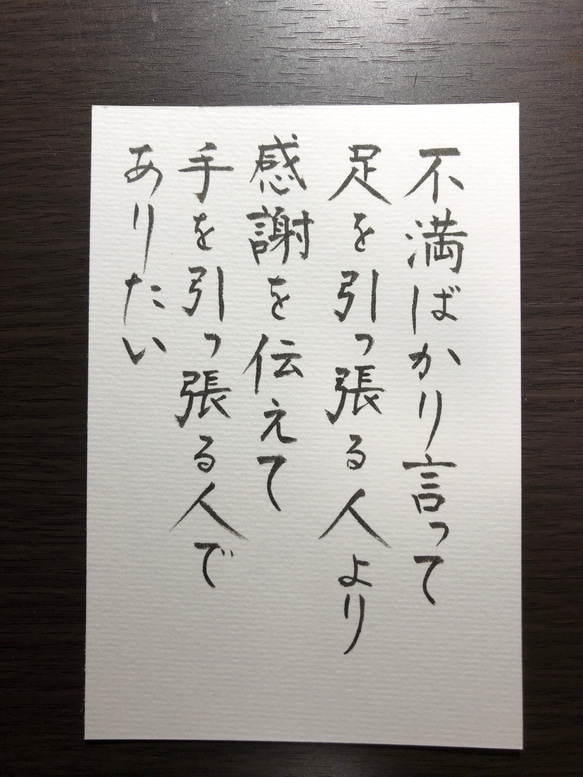 不満ばかり言って
足を引っ張る人より
感謝を伝えて
手を引っ張る人で
ありたい